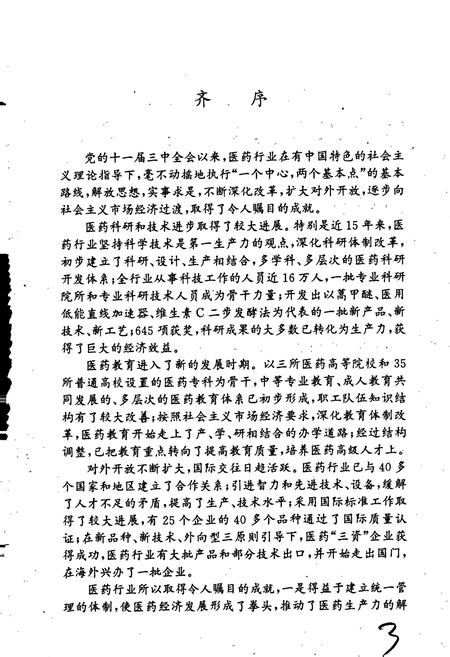 齐 序
党的十一届三中全会以来,医药行业在有中国特色的社会主
义理论指导下,毫不动摇地执行“一个中心,两个基本点”的基本
路线,解放思想,实事求是,不断深化改革,扩大对外开放,逐步向
社会主义市场经济过渡,取得了令人瞩目的成就。
医药科研和技术进步取得了较大进展。特别是近15年来,医
药行业坚持科学技术是第一生产力的观点,深化科研体制改革,
初步建立了科研、设计、生产相结合,多学科、多层次的医药科研
开发体系;全行业从事科技工作的人员近16万人,一批专业科研
院所和专业科研技术人员成为骨干力量;开发出以蒿甲醚、医用
低能直线加速器、维生素C二步发酵法为代表的一批新产品、新
技术、新工艺;645项获奖,科研成果的大多数已转化为生产力,获
得了巨大的经济效益。
医药教育进入了新的发展时期。以三所医药高等院校和35
所普通高校设置的医药专科为骨干,中等专业教育、成人教育共
同发展的、多层次的医药教育体系已初步形成,职工队伍知识结
构有了较大改善;按照社会主义市场经济要求,深化教育体制改
革,医药教育开始走上了产、学、研相结合的办学道路;经过结构
调整,已把教育重点转向了提高教育质量,培养医药高级人才上。
对外开放不断扩大,国际交往日趋活跃。医药行业已与40多
个国家和地区建立了合作关系;引进智力和先进技术、设备,缓解
了人才不足的矛盾,提高了生产、技术水平;采用国际标准工作取
得了较大进展,有25个企业的40多个品种通过了国际质量认
证;在新品种、新技术、外向型三原则引导下,医药“三资”企业获
得成功,医药行业有大批产品和部分技术出口,并开始走出国门,
在海外兴办了一批企业。
医药行业所以取得令人瞩目的成就,一是得益于建立统一管
理的体制,使医药经济发展形成了拳头,推动了医药生产力的解
3